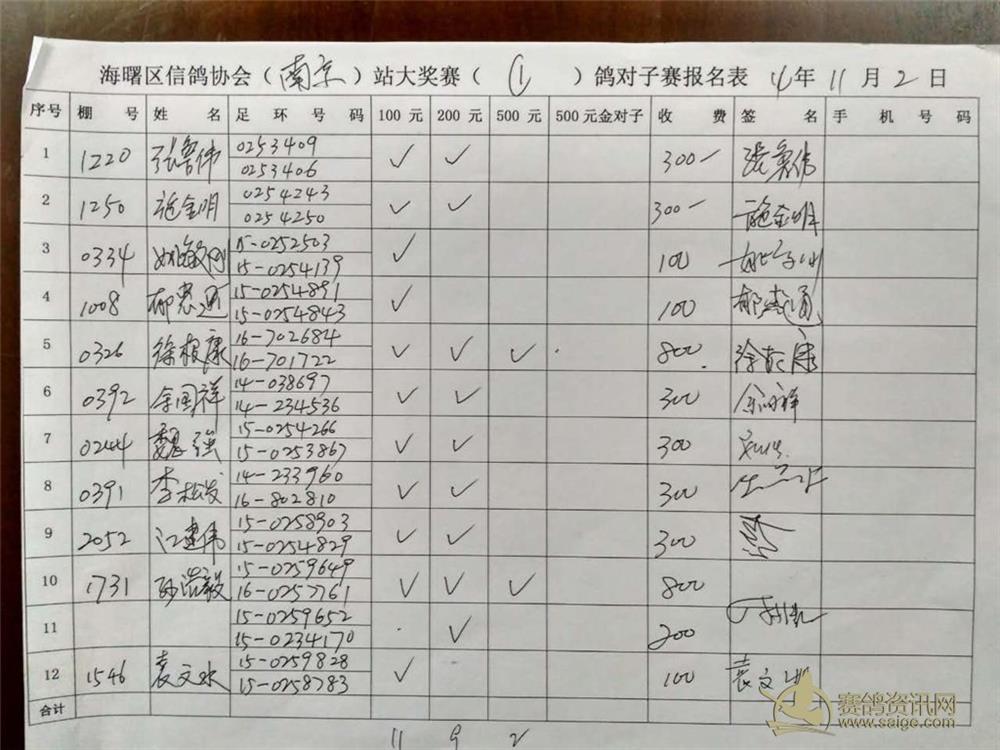 海曙区信鸽协会（南京）站大奖赛（①）鸽对子赛报名表 年11月2日
序号 棚号 姓名 足环号码 100元 200元 500元 500元金对子 收费 签名 手机号码
1 1220 张鲁伟 0253409 ✓ ✓ 300
0253406
2 1250 施金明 0254243 ✓ ✓ 300 施金明
0254250
3 0334 姚敏刚 15-0252503 ✓ 100
15-0254139
4 1008 郁惠通 15-0254891 ✓ 100 郁惠通
15-0254843
5 0326 徐根康 16-702684 ✓ ✓ ✓ 800 徐根康
16-701722
6 0392 余国祥 14-038697 ✓ ✓ 300 余国祥
14-234536
7 0244 魏强 15-0254266 ✓ ✓ 300
15-0253867
8 0391 李松发 14-233960 ✓ ✓ 300
16-802810
9 2052 江建伟 15-0258903 ✓ ✓ 300
15-0254829
10 1731 孙浩毅 15-0259649 ✓ ✓ ✓ 800
16-0252761
11 15-0259652 ✓ 200
15-0234170
12 1546 袁文 15-0259828 ✓ 100 袁文
15-0258783
合计
11 9 2
赛鸽资讯网
www.saige.com